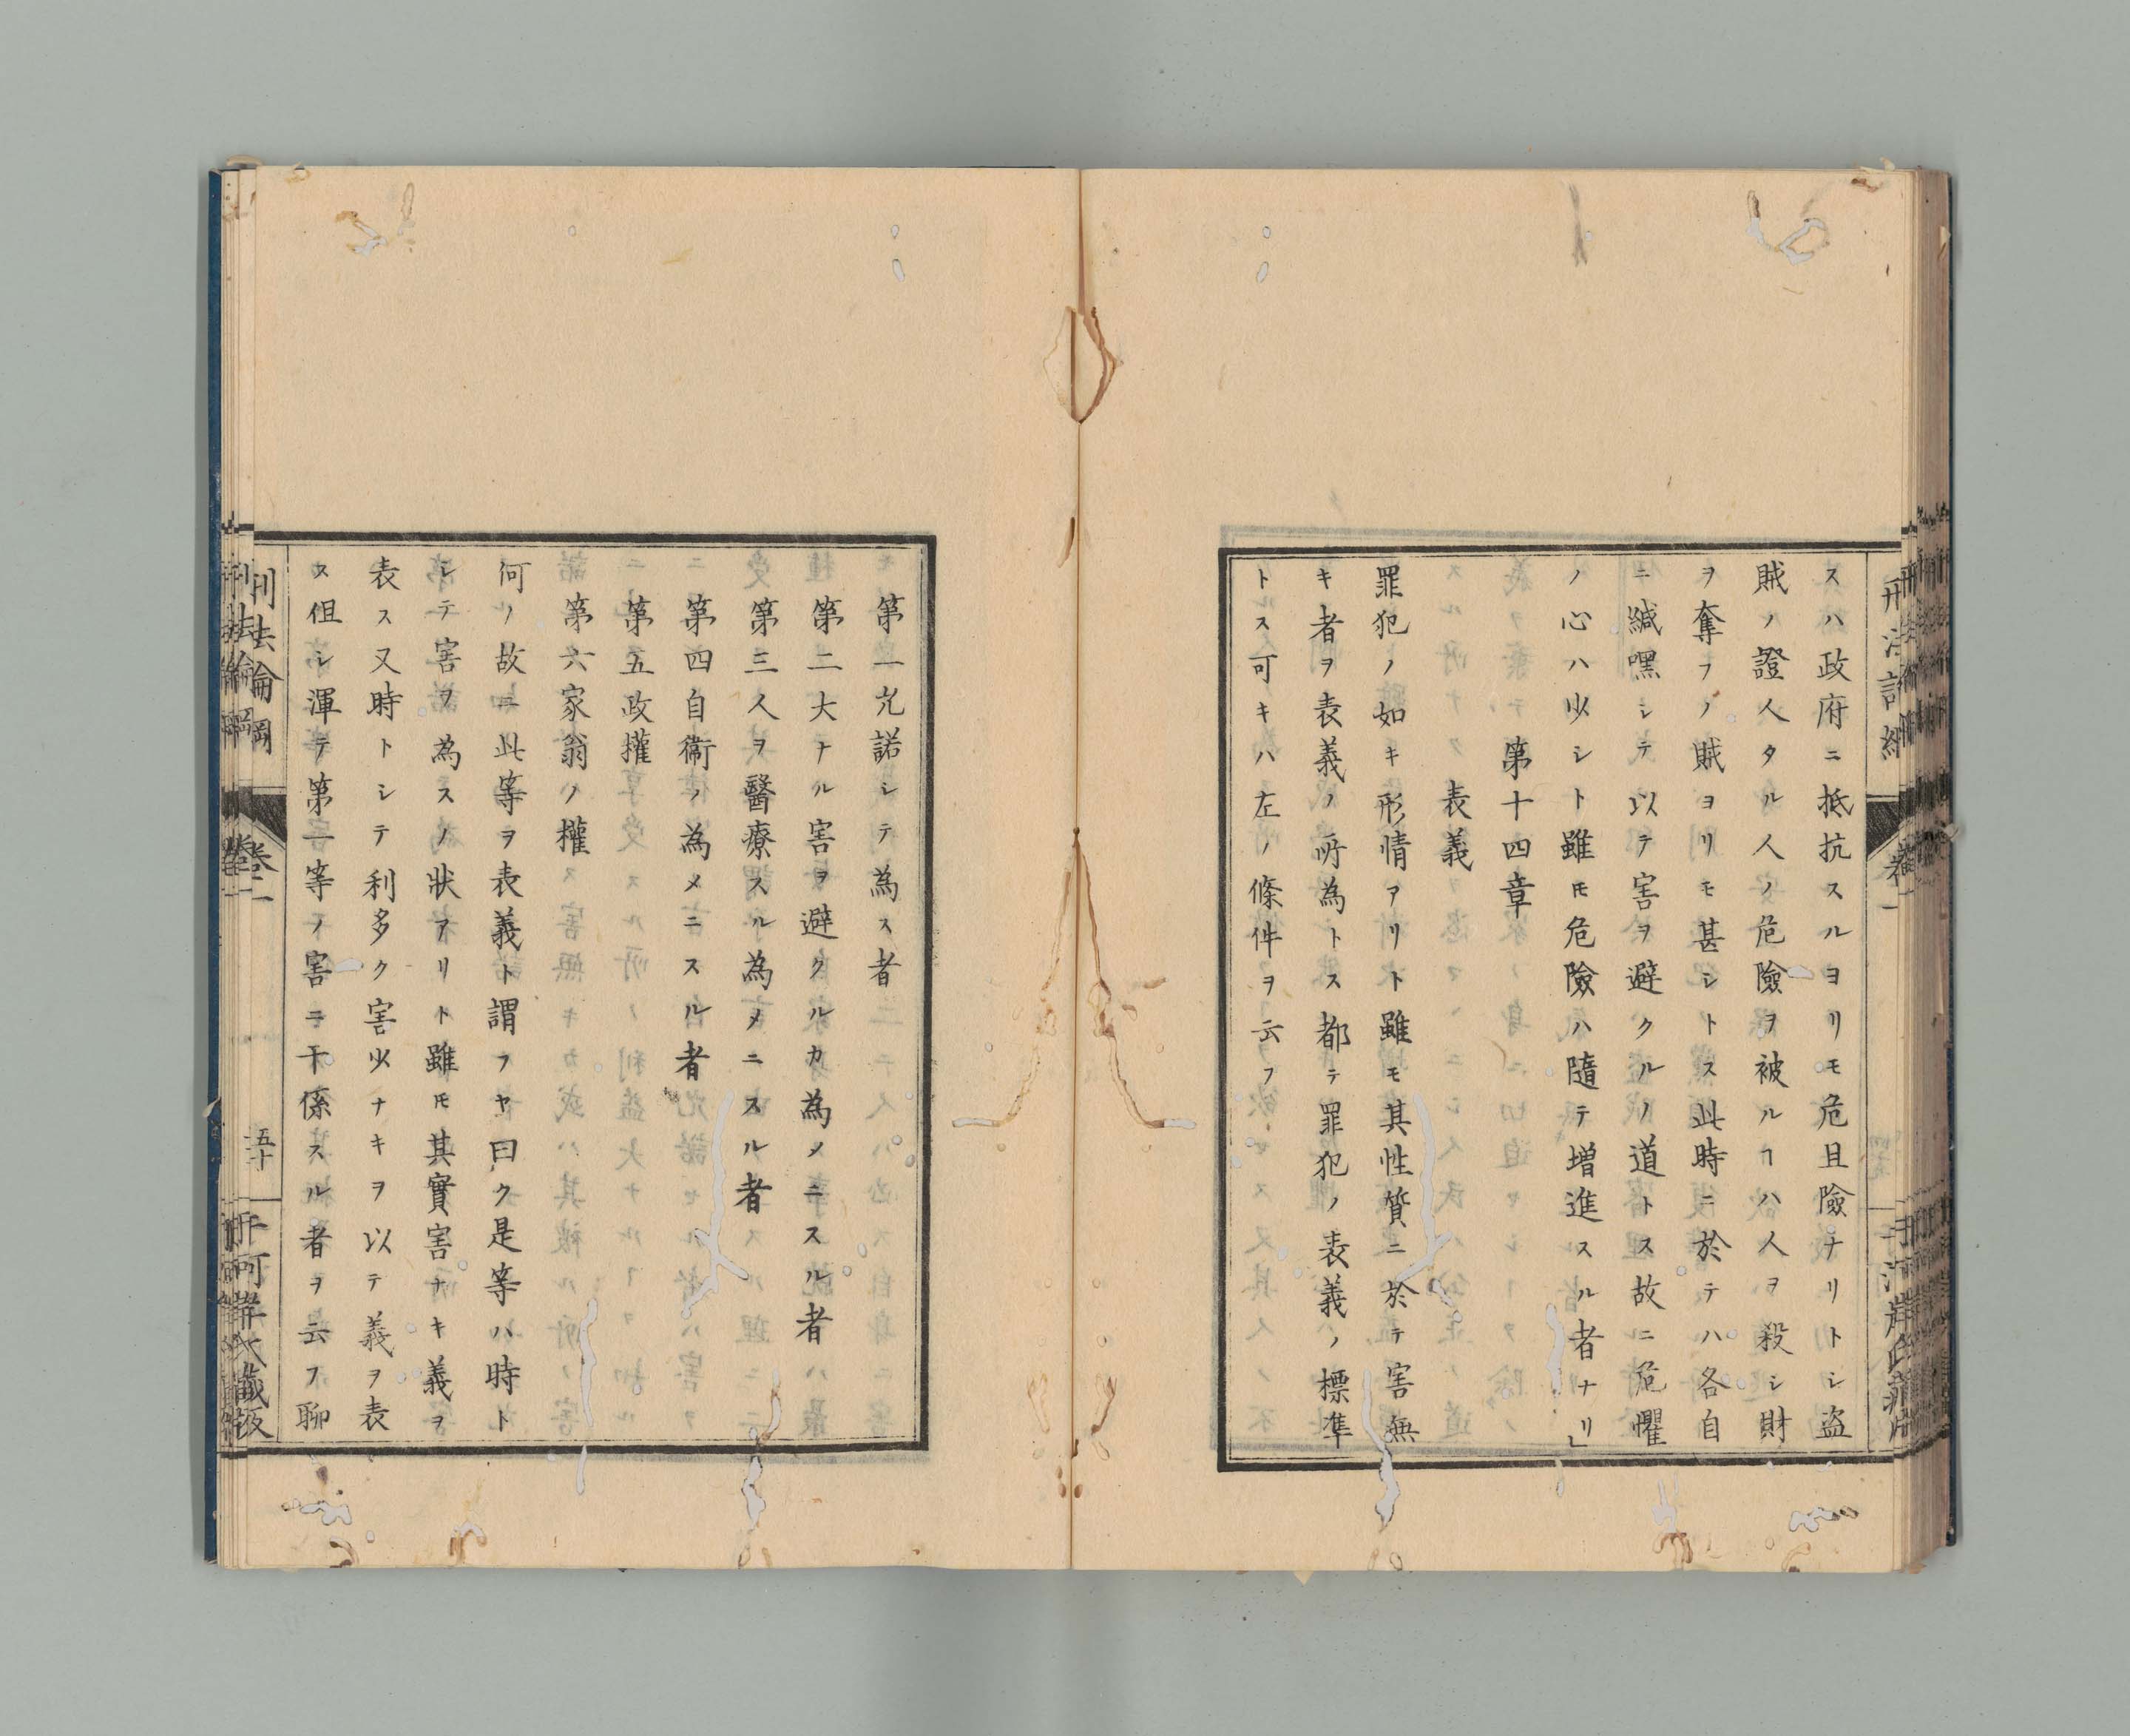 スハ政府ニ抵抗スルヨリモ危且險ナリトシ盗
賊ノ證人タル人ノ危險ヲ被ルヿハ人ヲ殺シ財
ヲ奪フノ賊ヨリモ甚シトス此時ニ於テハ各自
ニ緘嘿シテ以テ害ヲ避クルノ道トス故ニ危懼
ノ心ハ少シト雖モ危險ハ隨テ增進スル者ナリ」
第十四章
表義
罪犯ノ如キ形情アリト雖モ其性質ニ於テ害無
キ者ヲ表義ノ所為トス都テ罪犯ノ表義ノ標準
トス可キハ左ノ條件ヲ云フ
第一允諾シテ為ス者
第二大ナル害ヲ避クルカ為メニスル者
第三人ヲ醫療スル為メニスル者
第四自衞ノ為メニスル者
第五政權
第六家翁ノ權
何ノ故ニ此等ヲ表義ト謂フヤ曰ク是等ハ時ト
シテ害ヲ為スノ狀アリト雖モ其實害ナキ義ヲ
表ス又時トシテ利多ク害少ナキヲ以テ義ヲ表
ス伹シ渾テ第一等ノ害ニ干係スル者ヲ云フ聊
刑法論綱
卷一
五十
河岸氏藏板